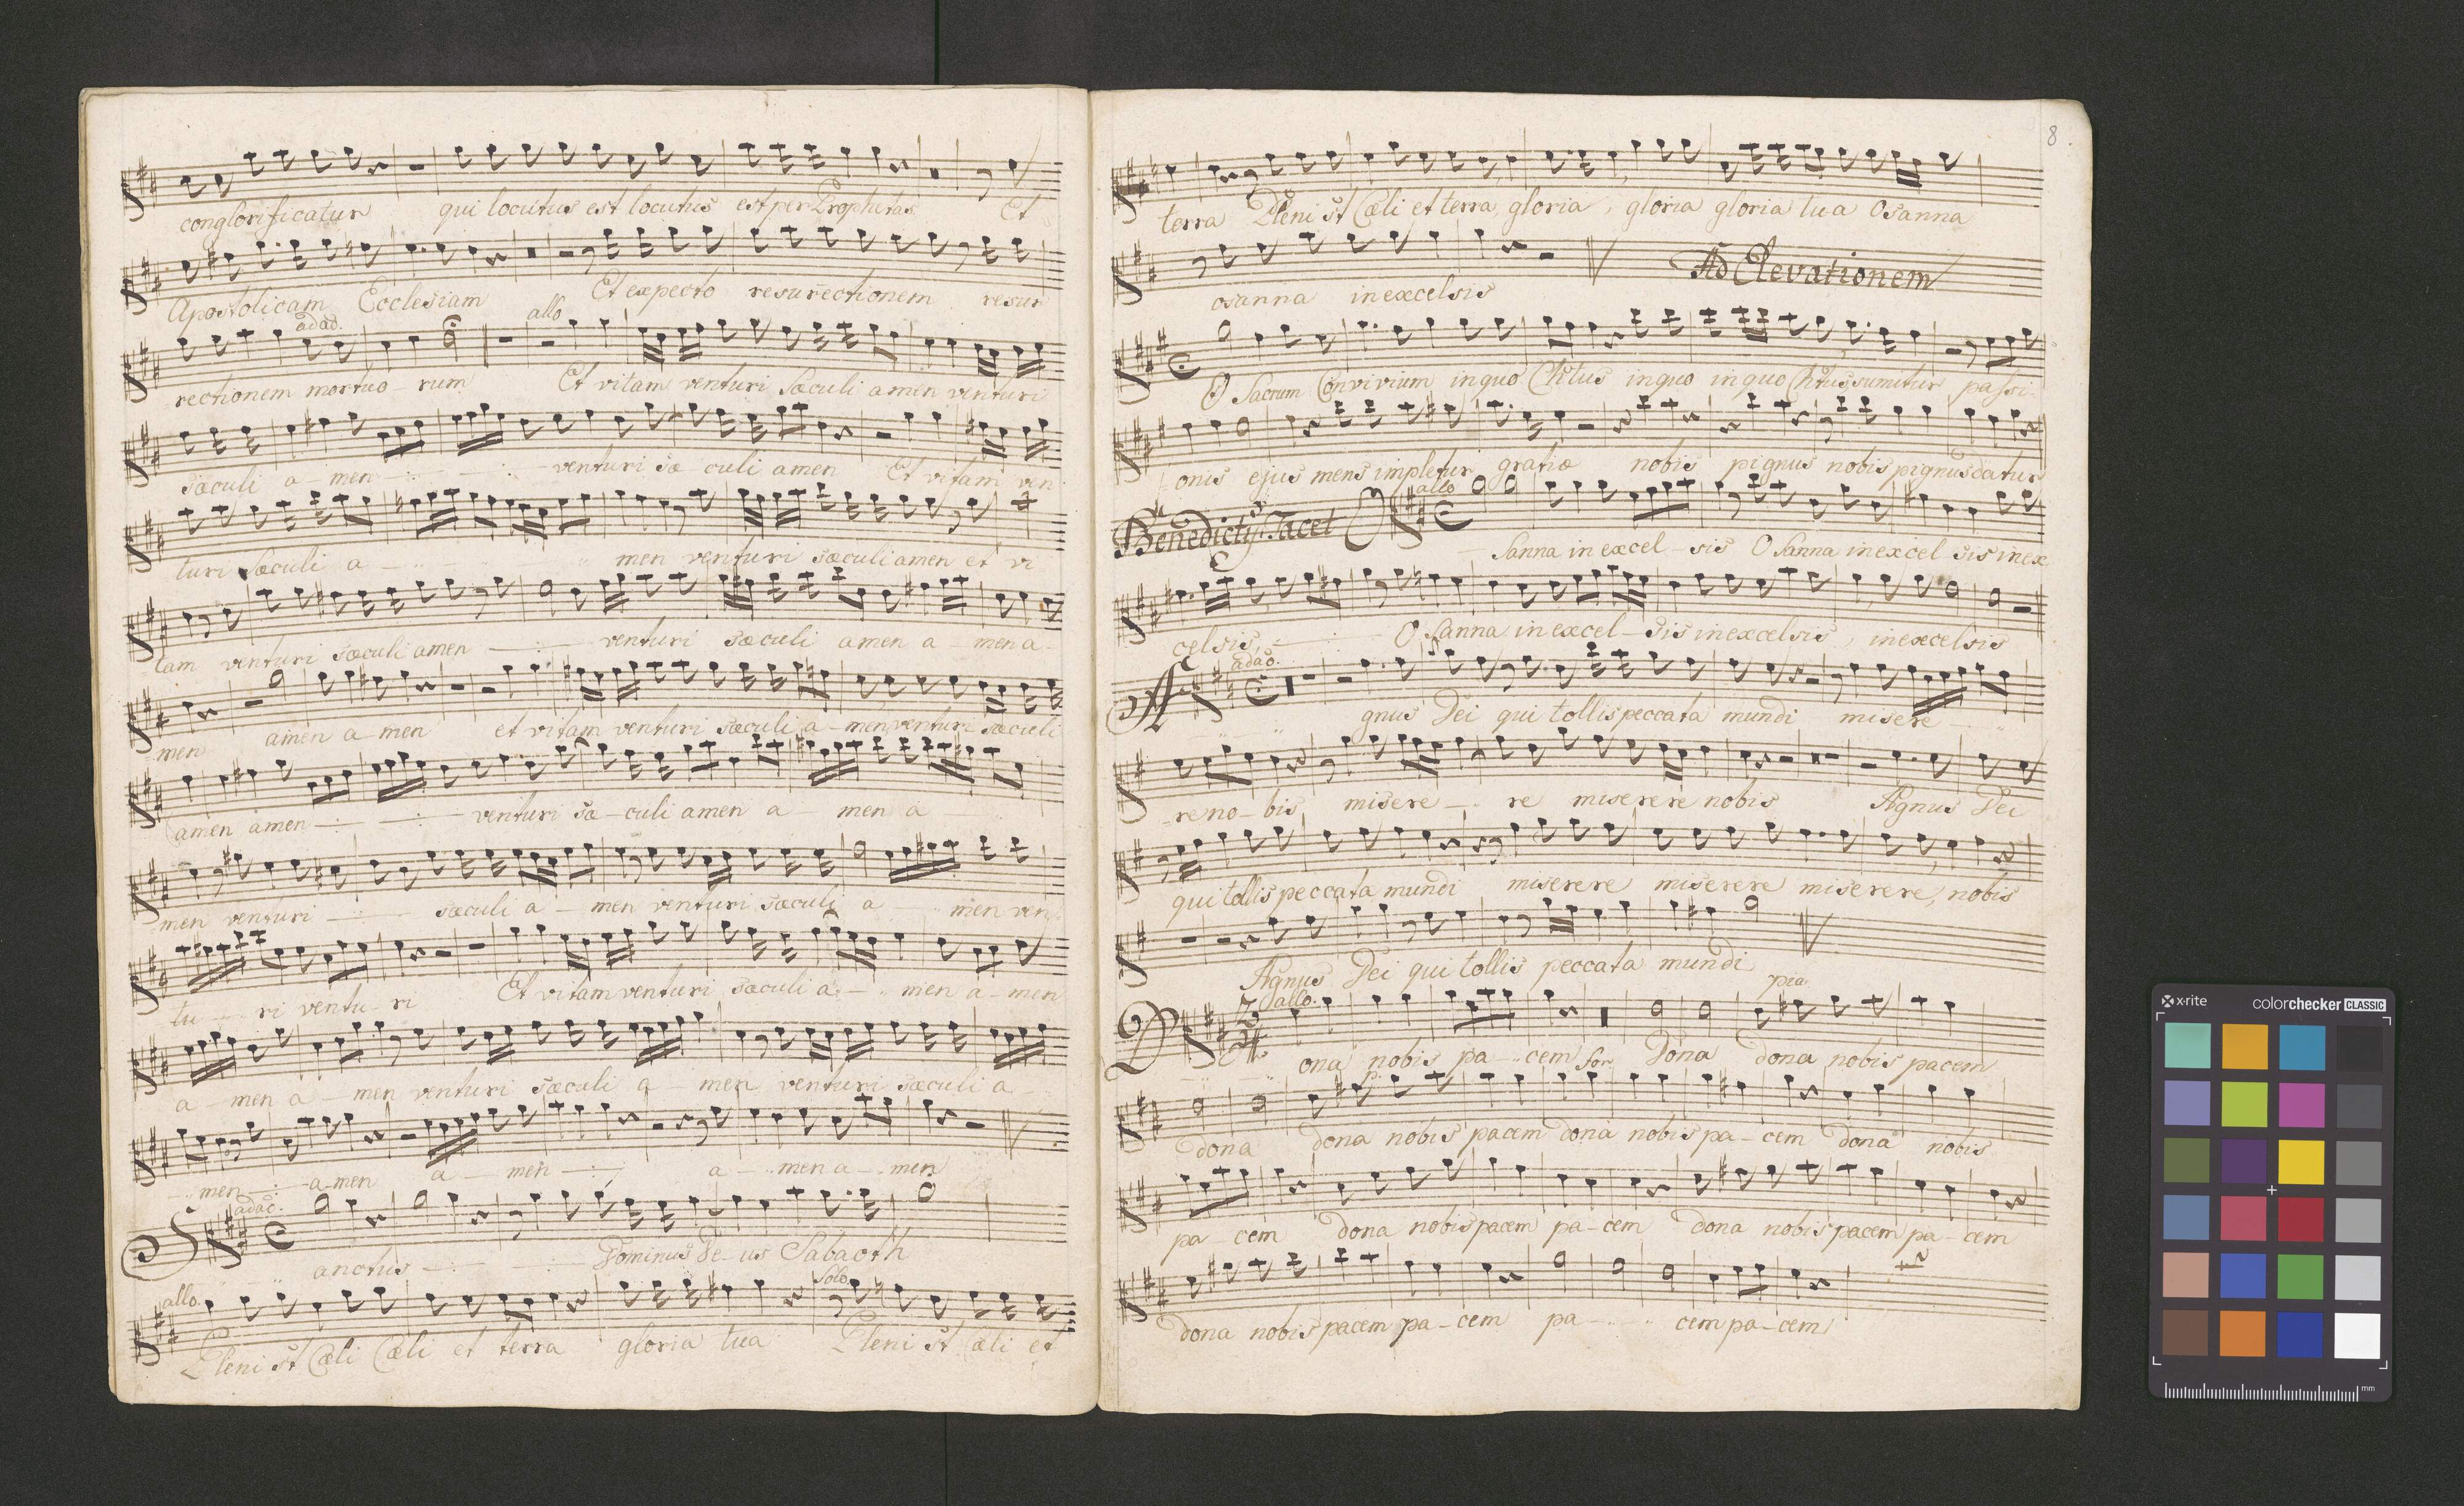 conglorificatur qui locutus est locutus est per Prophetas Et
Apostolicam Ecclesiam Et expecto resurectionem resur
adag. allo
rectionem mortuo - rum Et vitam venturi sæculi amen venturi
sæculi a - men venturi sæ culi amen Et vitam ven
turi sæculi a men venturi sæculi amen et vi
tam venturi sæculi amen venturi sæculi amen a - men a -
men amen a - men et vitam venturi sæculi a - men venturi sæculi
amen amen venturi sæ - culi amen a men a
men venturi sæculi a - men venturi sæculi a men ven
tu ri ventu - ri Et vitam venturi sæculi a - men a - men
a - men a - men venturi sæculi a men venturi sæculi a
men a - men a - men a - men a - men
adag.
Sanctus Dominus De - us Sabaoth
allo. Solo
Pleni st Cæli Cæli et terra gloria tua Pleni st cæli et
8.
terra Pleni st Cæli et terra, gloria, gloria gloria tu-a Osanna
osanna in excelsis Ad Elevationem
O Sacrum Convivium in quo Chstus in quo in quo Chstus sumitur passi-
onis ejus mens impletur gratiæ nobis pignus nobis pignus datur
Benedictus Tacet allo
O Sanna in excel - sis O Sanna in excel sis in ex
celsis, O Sanna in excel - sis in excelsis, in excelsis
adag.
Agnus Dei qui tollis peccata mundi misere
re no - bis misere - re miserere nobis Agnus Dei
qui tollis peccata mundi miserere miserere miserere, nobis
Agnus Dei qui tollis peccata mundi
allo. pia.
Dona nobis pa - cem for. Dona dona nobis pacem
p:
dona dona nobis pacem dona nobis pa - cem dona nobis
pa - cem dona nobis pacem pa - cem dona nobis pacem pa - cem
dona nobis pacem pa - cem pa - cem pa - cem
x-rite colorchecker CLASSIC
mm